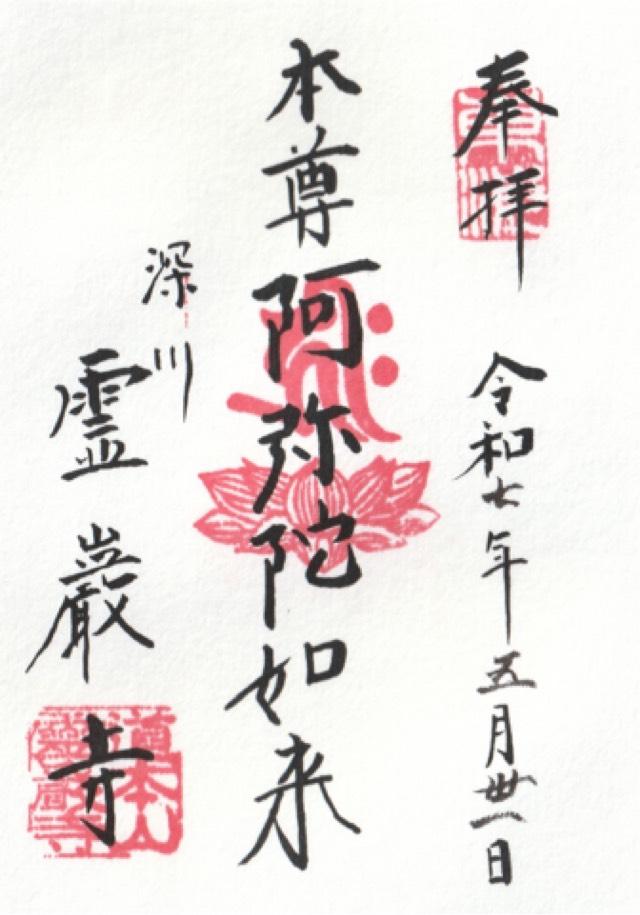 奉拝
令和七年五月卅一日
本尊阿弥陀如来
深川
霊巌寺